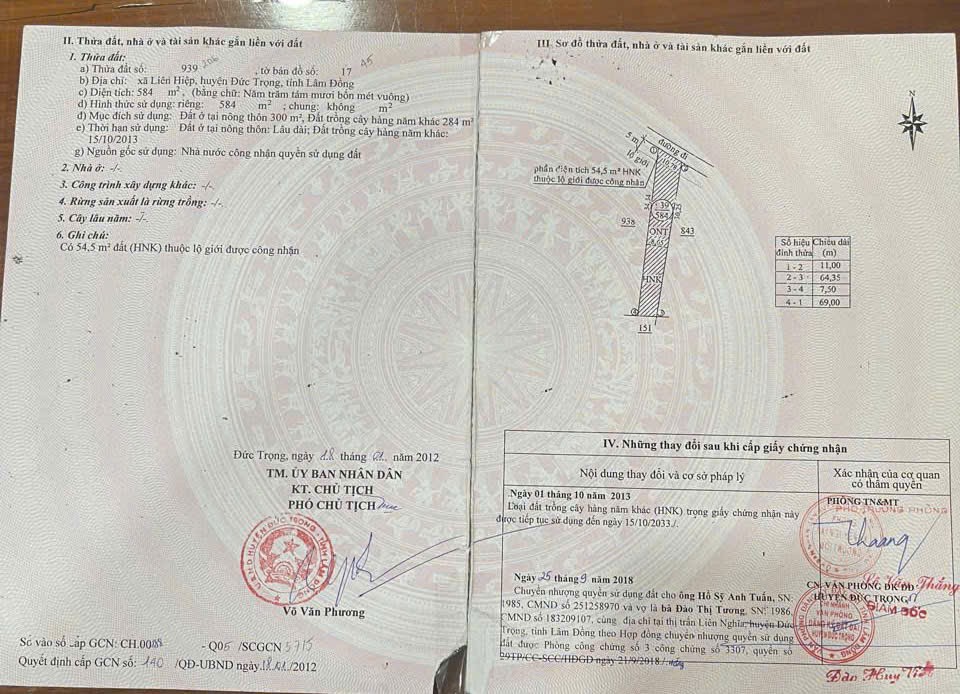 II. Thửa đất, nhà ở và tài sản khác gắn liền với đất
1. Thửa đất:
a) Thửa đất số: 939 206, tờ bản đồ số: 17 45
b) Địa chỉ: xã Liên Hiệp, huyện Đức Trọng, tỉnh Lâm Đồng
c) Diện tích: 584 m², (bằng chữ: Năm trăm tám mươi bốn mét vuông)
d) Hình thức sử dụng: riêng: 584 m²; chung: không m²
đ) Mục đích sử dụng: Đất ở tại nông thôn 300 m², Đất trồng cây hàng năm khác 284 m²
e) Thời hạn sử dụng: Đất ở tại nông thôn: Lâu dài; Đất trồng cây hàng năm khác:
15/10/2013
g) Nguồn gốc sử dụng: Nhà nước công nhận quyền sử dụng đất
2. Nhà ở: -/-
3. Công trình xây dựng khác: -/-
4. Rừng sản xuất là rừng trồng: -/-.
5. Cây lâu năm: -/-
6. Ghi chú:
Có 54,5 m² đất (HNK) thuộc lộ giới được công nhận
Đức Trọng, ngày 18 tháng 01 năm 2012
TM. ỦY BAN NHÂN DÂN
KT. CHỦ TỊCH
PHÓ CHỦ TỊCH
U.B.N.D HUYỆN ĐỨC TRỌNG - TỈNH LÂM ĐỒNG
Võ Văn Phương
Số vào sổ cấp GCN: CH.00 - Q05 /SCGCN 5715
Quyết định cấp GCN số: 140 /QĐ-UBND ngày 18/01/2012
III. Sơ đồ thửa đất, nhà ở và tài sản khác gắn liền với đất
N
đường đi
5 m
lộ giới
10,76
phần diện tích 54,5 m² HNK
thuộc lộ giới được công nhận
938
584
ONT
843
HNK
151
Số hiệu đỉnh thửa Chiều dài (m)
1 - 2 11,00
2 - 3 64,35
3 - 4 7,50
4 - 1 69,00
IV. Những thay đổi sau khi cấp giấy chứng nhận
Nội dung thay đổi và cơ sở pháp lý
Xác nhận của cơ quan
có thẩm quyền
Ngày 01 tháng 10 năm 2013
Loại đất trồng cây hàng năm khác (HNK) trong giấy chứng nhận này
được tiếp tục sử dụng đến ngày 15/10/2033./.
PHÒNG TN&MT
PHÓ TRƯỞNG PHÒNG
Lê Văn Thắng
Ngày 25 tháng 9 năm 2018
Chuyển nhượng quyền sử dụng đất cho ông Hồ Sỹ Anh Tuấn, SN:
1985, CMND số 251258970 và vợ là bà Đào Thị Tương, SN: 1986,
CMND số 183209107, cùng địa chỉ tại thị trấn Liên Nghĩa, huyện Đức
Trọng, tỉnh Lâm Đồng theo Hợp đồng chuyển nhượng quyền sử dụng
đất được Phòng công chứng số 3 công chứng số 3307, quyển số
29TP/CC-SCC/HĐGD ngày 21/9/2018./.
CN. VĂN PHÒNG ĐKĐĐ
HUYỆN ĐỨC TRỌNG
GIÁM ĐỐC
CHI NHÁNH
VĂN PHÒNG
ĐĂNG KÝ ĐẤT ĐAI
HUYỆN ĐỨC TRỌNG
Đào Huy